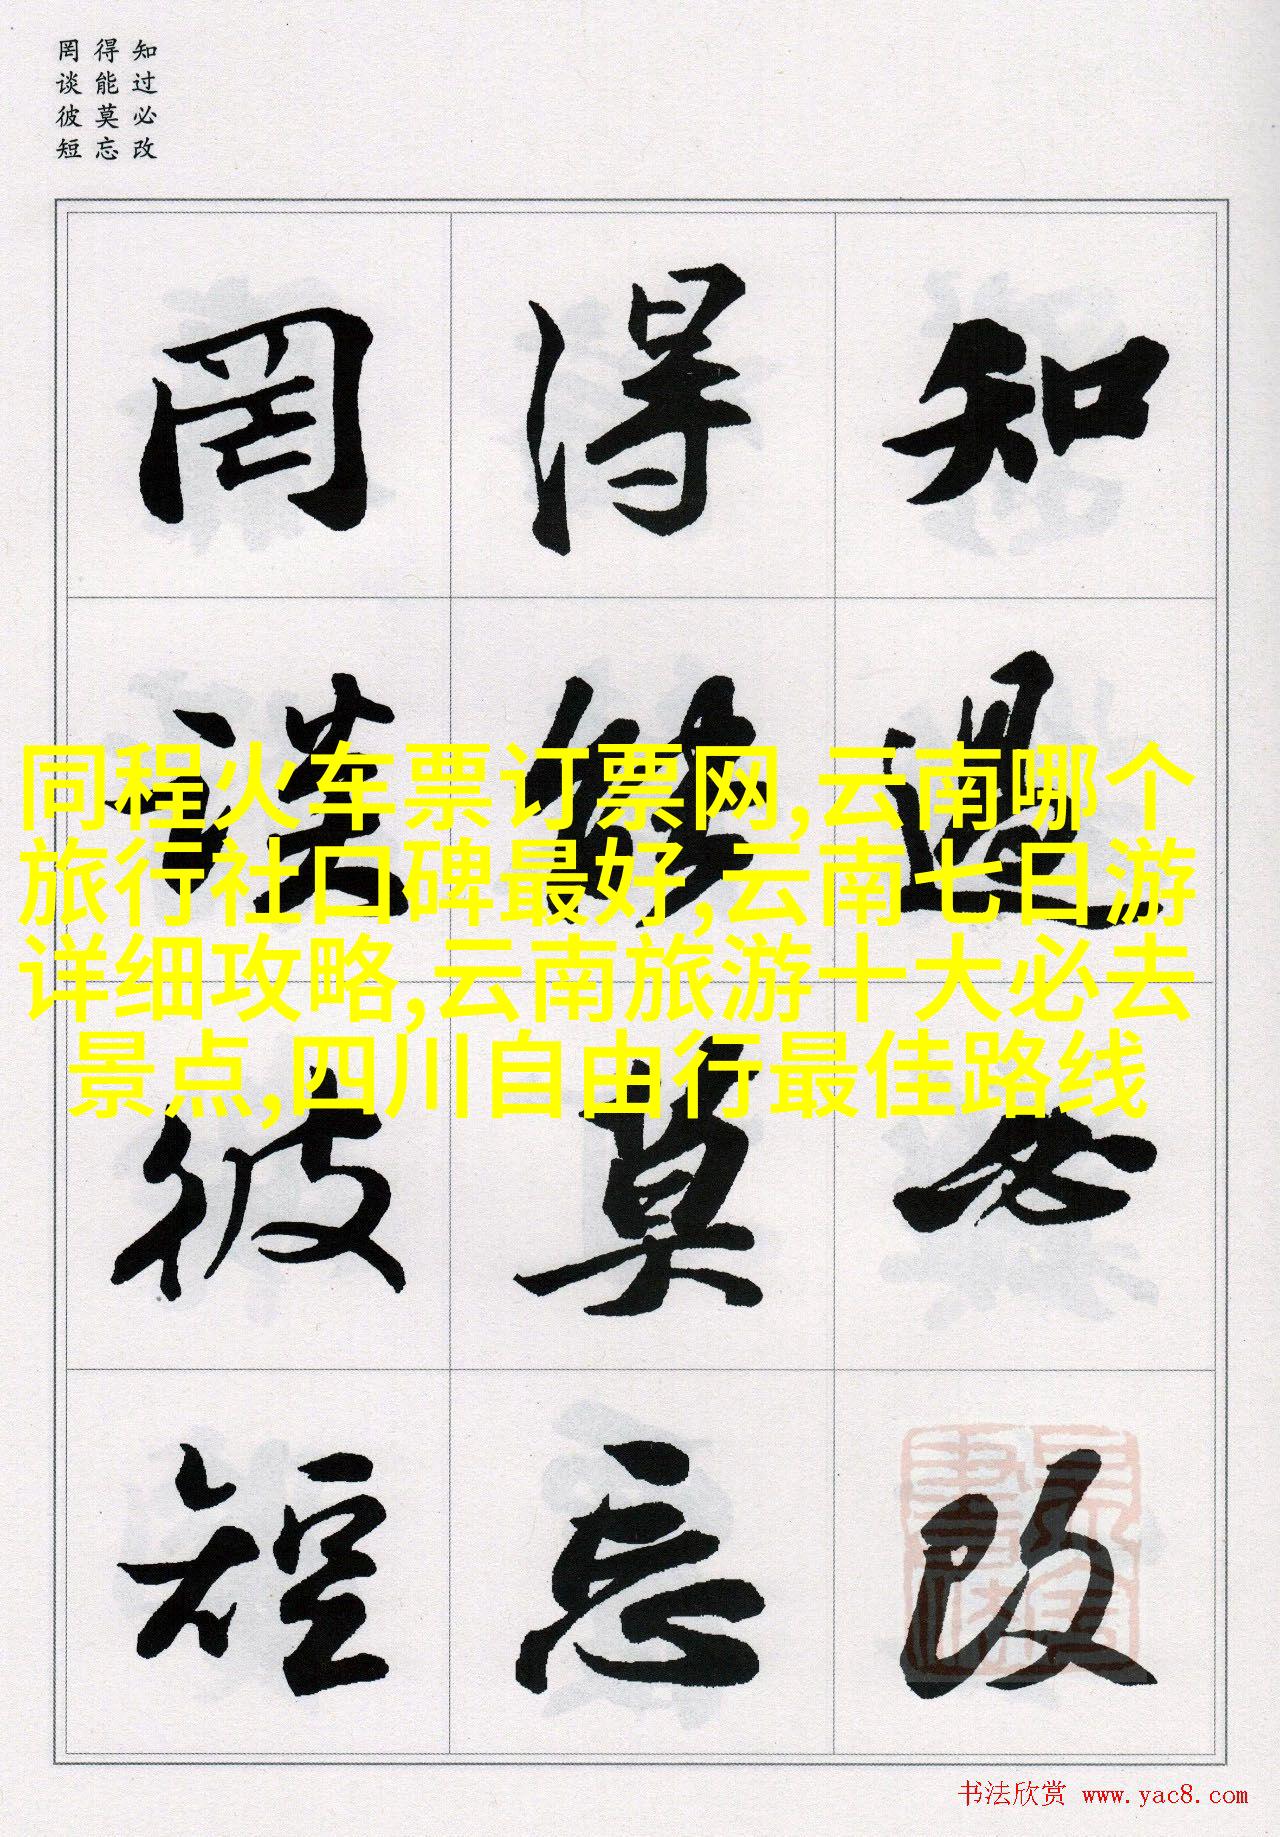 知过必改
得能莫忘
罔谈彼短
知過必改
得能莫忘
罔談彼短
同程火车票订票网,云南哪个
旅行社口碑最好,云南七日游
详细攻略,云南旅游十大必去
景点,四川自由行最佳路线
书法欣赏 www.yac8.com